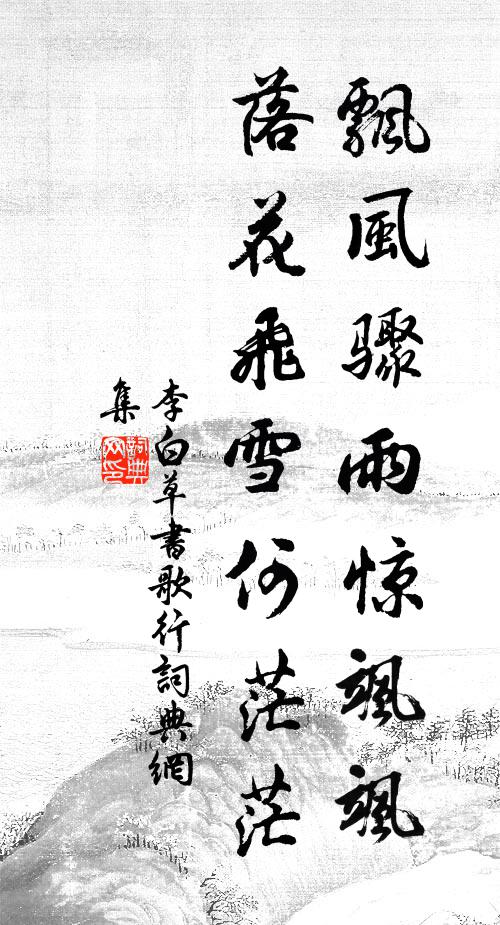 飄風驟雨惊颯颯
落花飛雪何茫茫
李白草書歌行詞典網
集
詞典网印